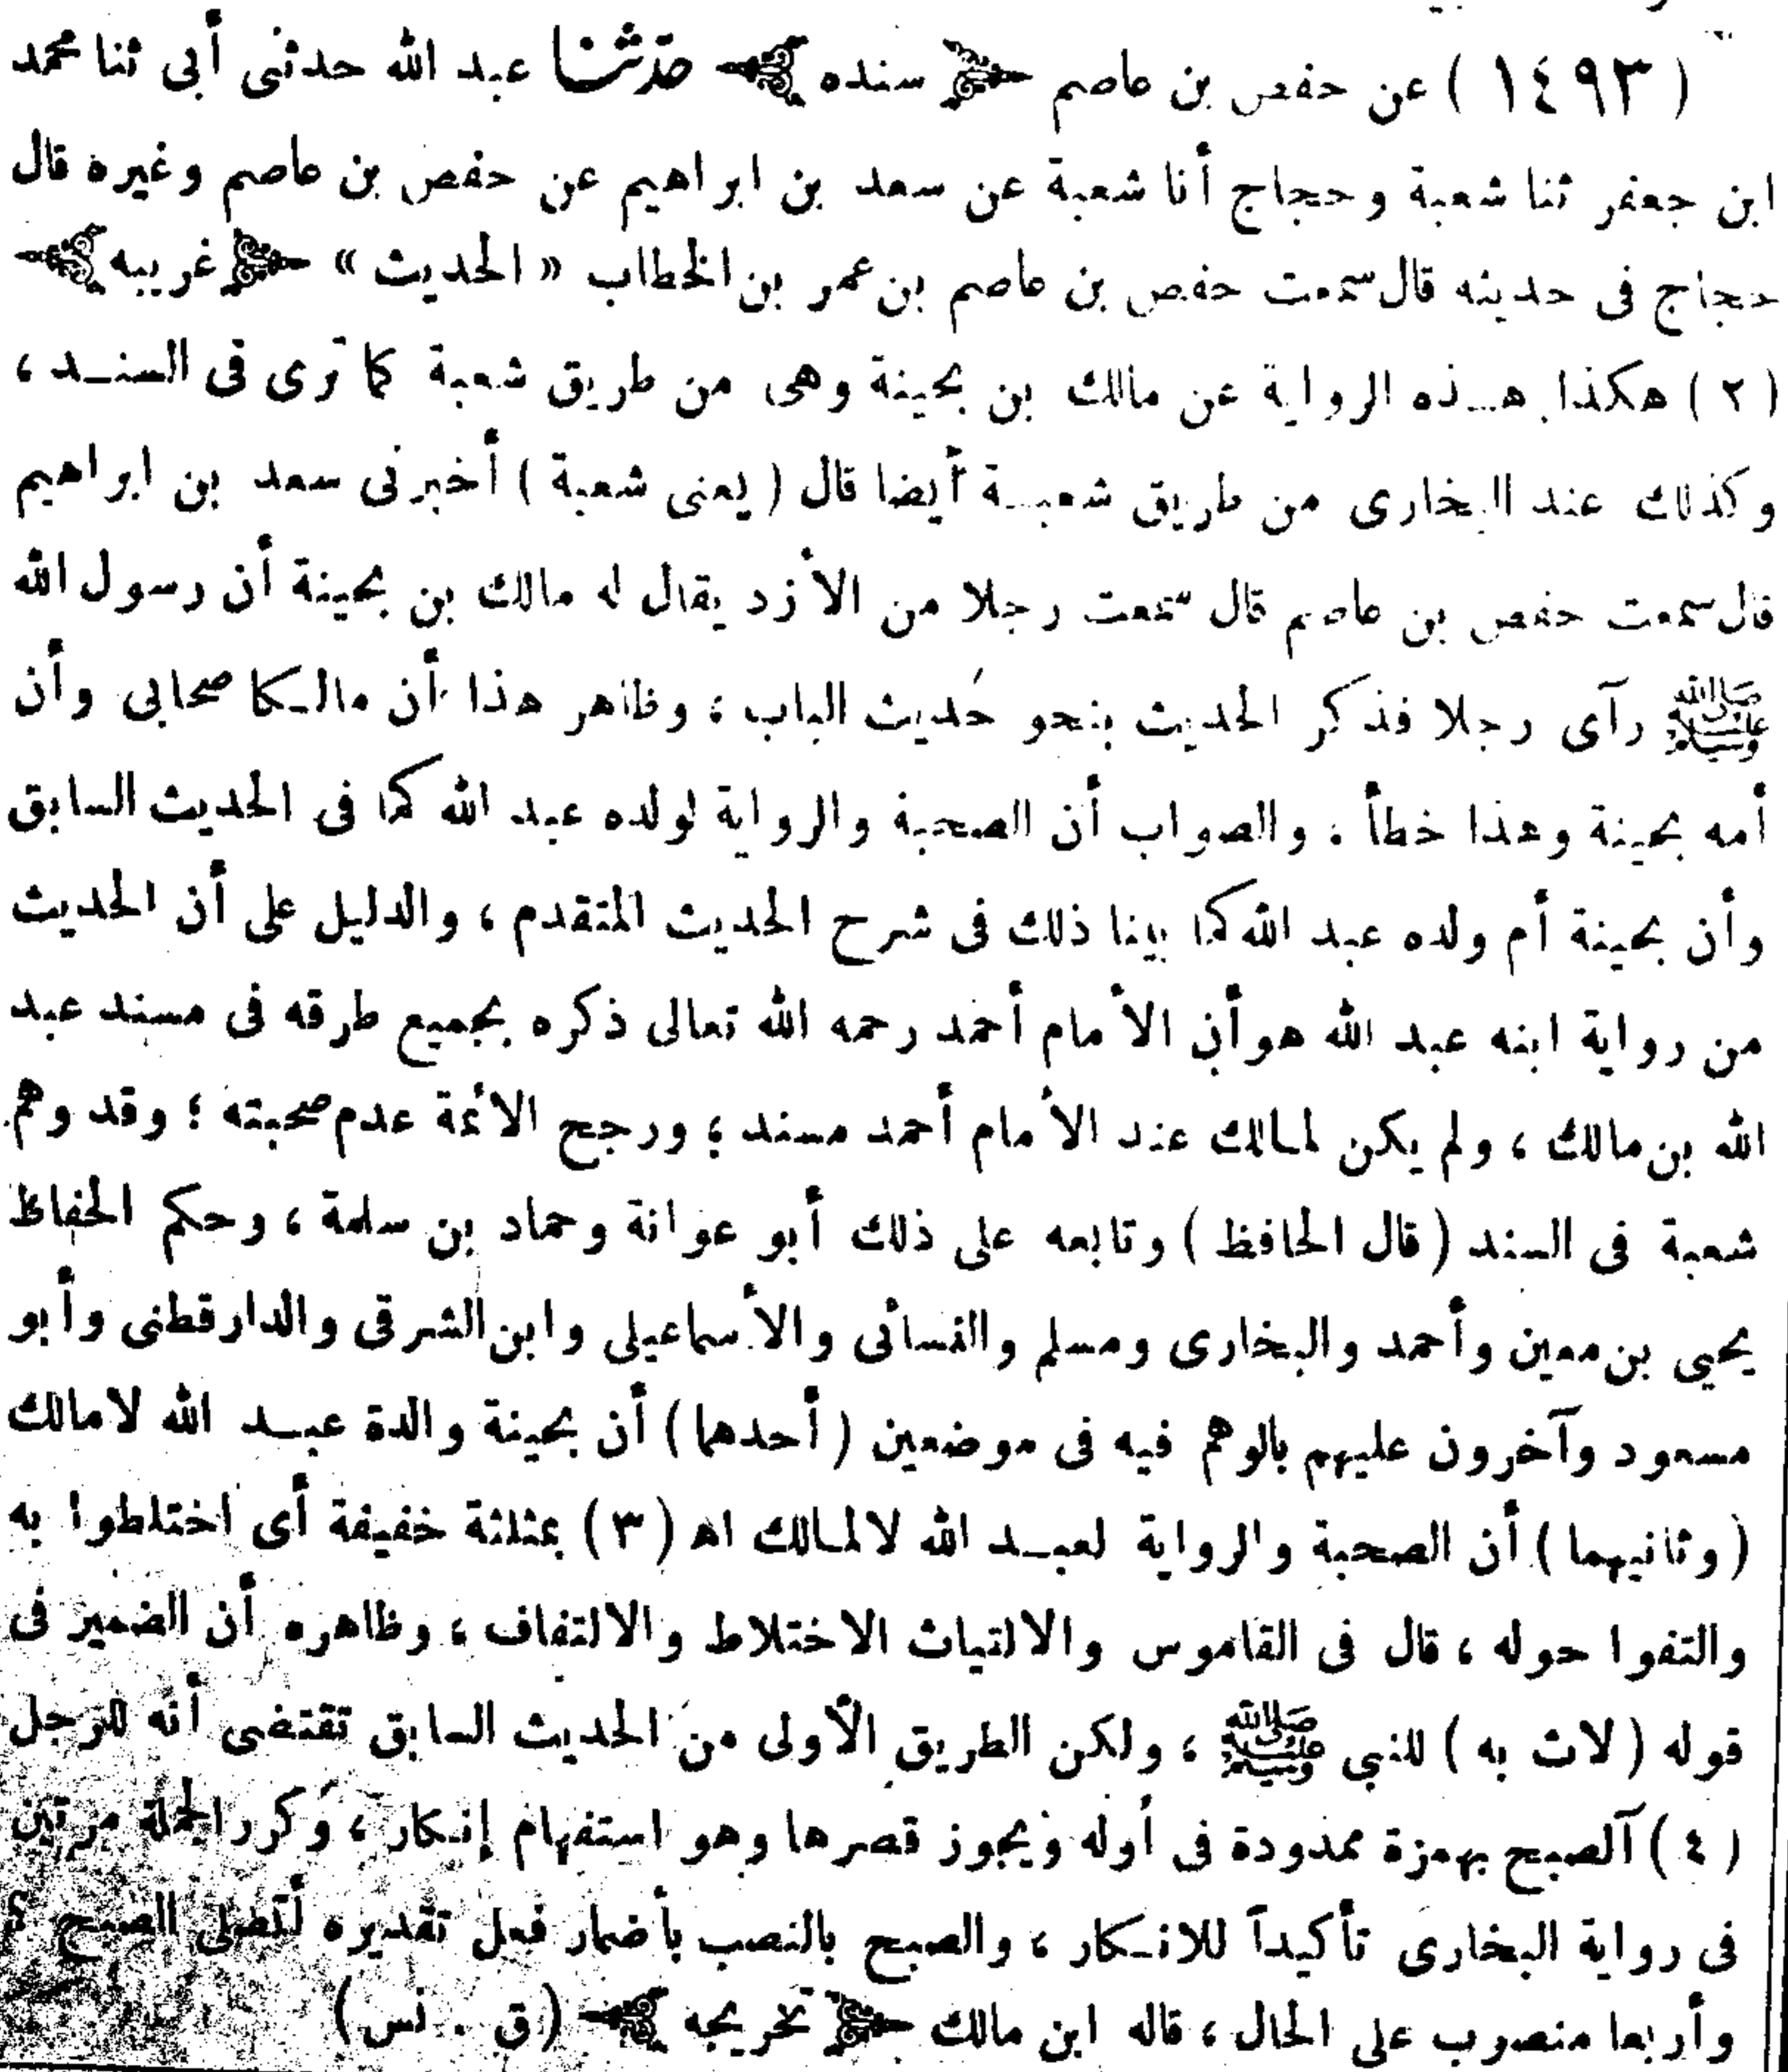 ( ١٤٩٣ ) عن حفص بن عاصم ﴿ سنده ﴾ حدثنا عبد الله حدثنى أبى ثنا محمد
ابن جعفر ثنا شعبة وحجاج أنا شعبة عن سعد بن ابراهيم عن حفص بن عاصم وغيره قال
حجاج فى حديثه قال سمعت حفص بن عاصم بن عمر بن الخطاب « الحديث » ﴿ غريبه ﴾
( ٢ ) هكذا هـذه الرواية عن مالك بن بحينة وهى من طريق شعبة كما ترى فى السنـد ،
وكذلك عند البخارى من طريق شعبـة أيضا قال ( يعنى شعبة ) أخبرنى سعد بن ابراهيم
قال سمعت حفص بن عاصم قال سمعت رجلا من الأزد يقال له مالك بن بحينة أن رسول الله
ﷺ رآى رجلا فذكر الحديث بنحو حديث الباب ، وظاهر هذا أن مالـكا صحابى وأن
أمه بحينة وهذا خطأ ، والصواب أن الصحبة والرواية لولده عبد الله كما فى الحديث السابق
وأن بحينة أم ولده عبد الله كما بينا ذلك فى شرح الحديث المتقدم ، والدليل على أن الحديث
من رواية ابنه عبد الله هو أن الأمام أحمد رحمه الله تعالى ذكره بجميع طرقه فى مسند عبد
الله بن مالك ، ولم يكن لمالك عند الأمام أحمد مسند ؛ ورجح الائمة عدم صحبته ؛ وقد وهم
شعبة فى السند ( قال الحافظ ) وتابعه على ذلك أبو عوانة وحماد بن سلمة ، وحكم الحفاظ
يحيي بن معين وأحمد والبخارى ومسلم والنسائى والأسماعيلى وابن الشرقى والدارقطنى وأبو
مسعود وآخرون عليهم بالوهم فيه فى موضعين ( أحدهما ) أن بحينة والدة عبـد الله لا مالك
( وثانيهما ) أن الصحبة والرواية لعبـد الله لا لمالك اهـ ( ٣ ) بمثلثة خفيفة أى اختلطوا به
والتفوا حوله ، قال فى القاموس والالتياث الاختلاط والالتفاف ، وظاهره أن الضمير فى
قوله ( لاث به ) للنبي ﷺ ، ولكن الطريق الأولى من الحديث السابق تقتضى أنه للرجل
( ٤ ) آلصبح بهمزة ممدودة فى أوله ويجوز قصرها وهو استفهام إنـكار ، وكرر الجملة مرتين
فى رواية البخارى تأكيداً للانـكار ، والصبح بالنصب بأضمار فعل تقديره أتصلى الصبح ؟
وأربعا منصرب على الحال ، قاله ابن مالك ﴿ تخريجه ﴾ ( ق . نس )